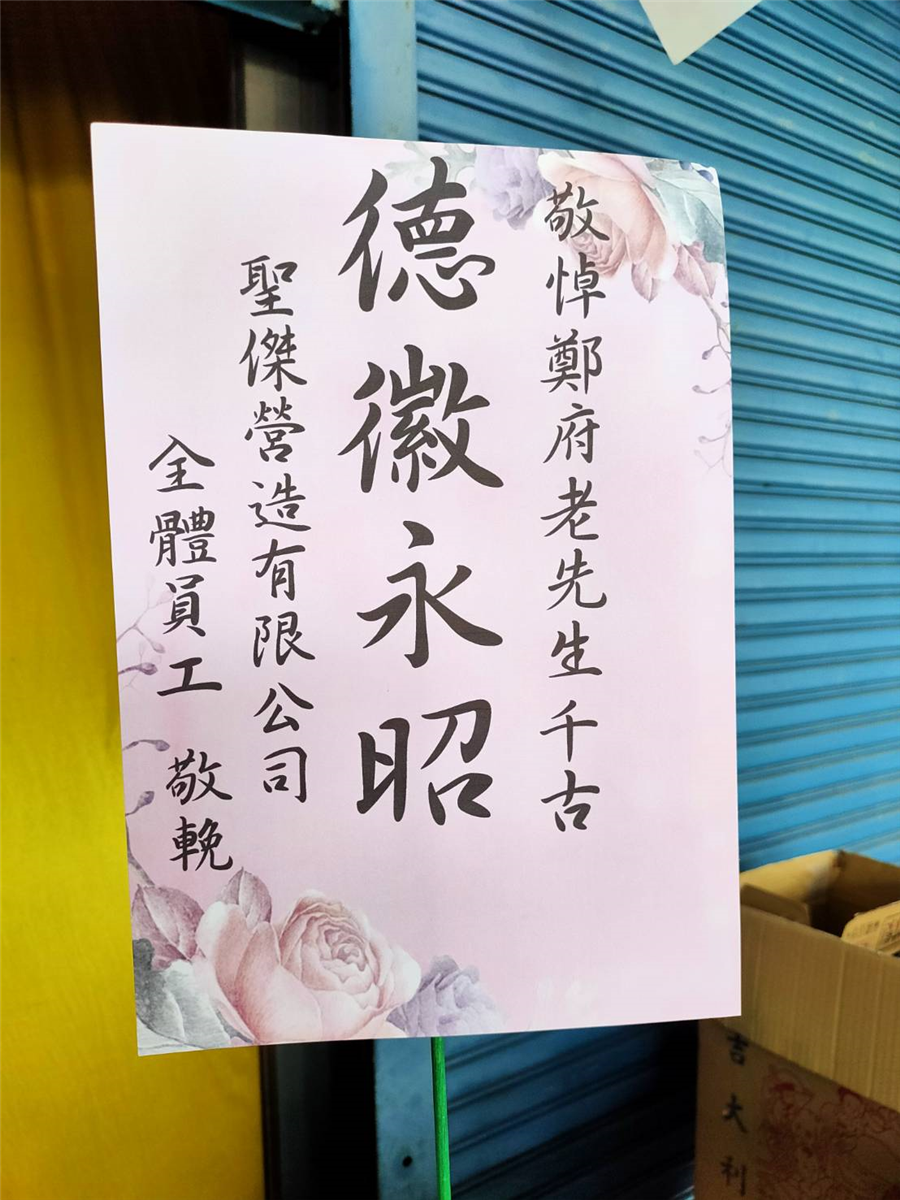 敬悼鄭府老先生千古
德徽永昭
聖傑營造有限公司
全體員工 敬輓
吉大利